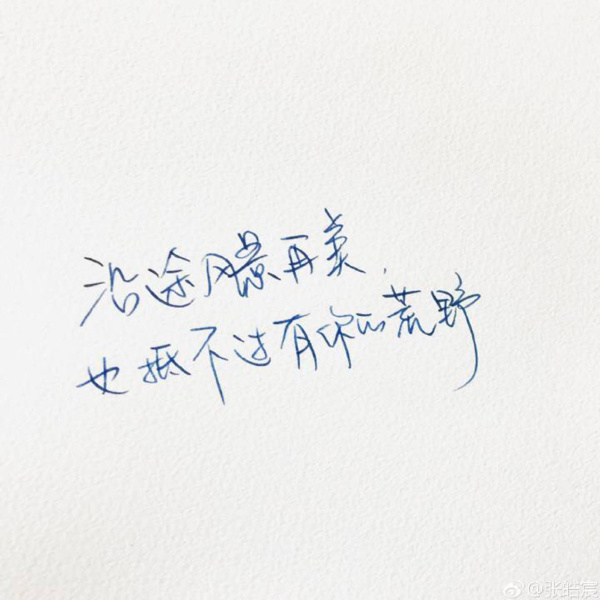 沿途风景再美，
也抵不过有你的荒野
@张皓宸